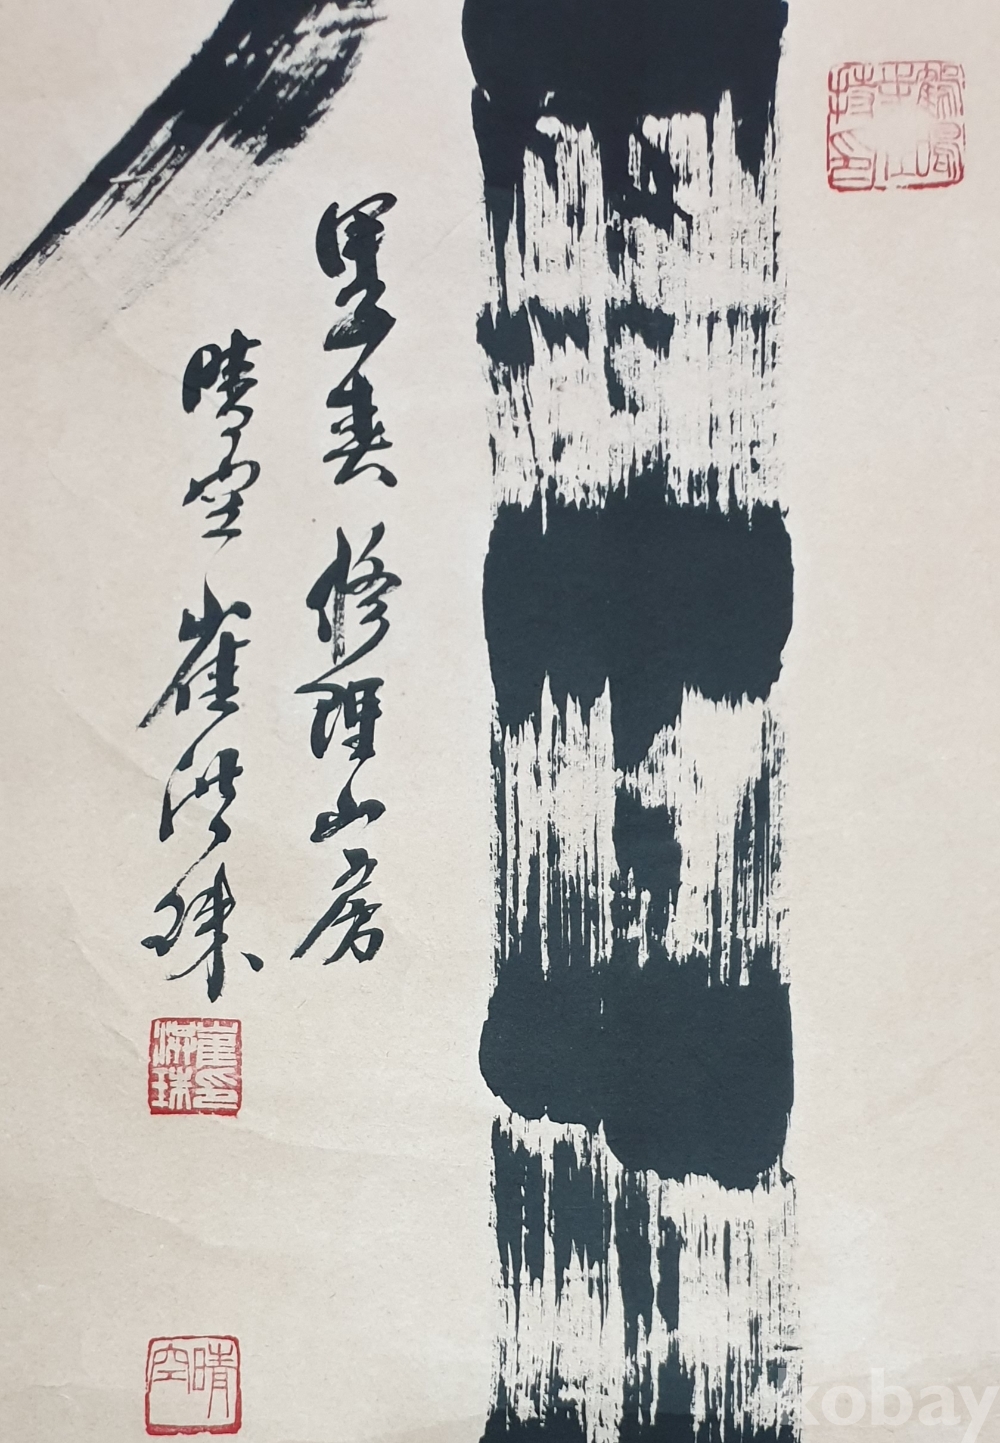 春 修理山房
晴空 崔洪珠
崔印洪珠
晴空
kobay